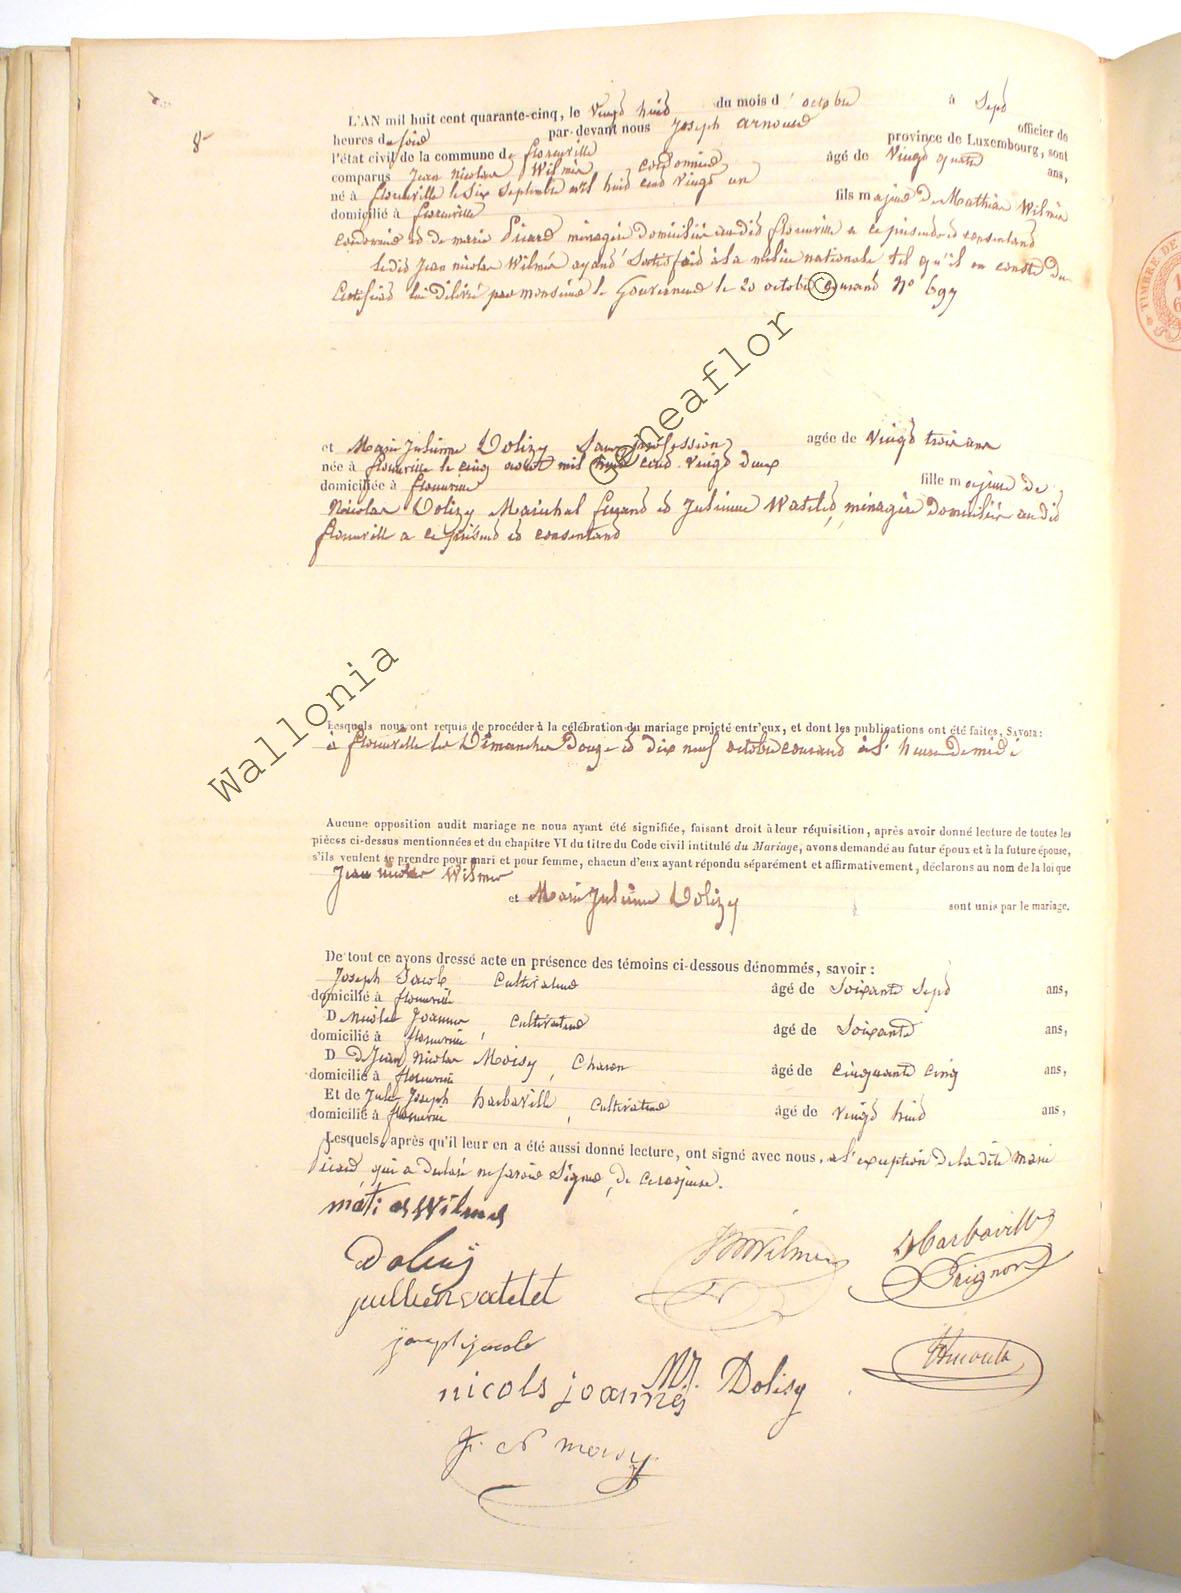 8
L'AN mil huit cent quarante-cinq, le vingt huit du mois d'octobre à sept
heures du soir par-devant nous Joseph Arnould officier de
l'état civil de la commune de florenville province de Luxembourg, sont
comparus Jean Nicolas Wilmer cordonnier âgé de vingt quatre ans,
né à florenville le six Septembre mil huit cent vingt un
domicilié à florenville fils majeur de Mathias Wilmer
cordonnier et de marie Picard ménagère domiciliés audit florenville a ce présents et consentant
ledit Jean nicolas Wilmer ayant Satisfait à la milice nationale tel qu'il en conste du
Certificat lui délivré par monsieur le Gouverneur le 20 octobre courant N° 697
et Marie Julienne Dolizy Sans profession agée de vingt trois ans
née à florenville le cinq août mil huit cent vingt deux
domiciliée à florenville fille majeure de
Nicolas Dolizy Maréchal ferrant et Julienne Watelet, ménagère domiciliés audit
florenville a ce présent et consentant
Lesquels nous ont requis de procéder à la célébration du mariage projeté entr'eux, et dont les publications ont été faites, SAVOIR:
à florenville les Dimanches Douze et dix neuf octobre courant à l'heure de midi
Aucune opposition audit mariage ne nous ayant été signifiée, faisant droit à leur réquisition, après avoir donné lecture de toutes les
pièces ci-dessus mentionnées et du chapitre VI du titre du Code civil intitulé du Mariage, avons demandé au futur époux et à la future épouse,
s'ils veulent se prendre pour mari et pour femme, chacun d'eux ayant répondu séparément et affirmativement, déclarons au nom de la loi que
Jean nicolas Wilmer
et Marie Julienne Dolizy sont unis par le mariage.
De tout ce avons dressé acte en présence des témoins ci-dessous dénommés, savoir:
Joseph Jacob Cultivateur
domicilié à florenville âgé de Soixante Sept ans,
D nicolas Joannes, Cultivateur
domicilié à florenville âgé de Soixante ans,
D de Jean Nicolas Moisy, Charon
domicilié à florenville âgé de cinquante cinq ans,
Et de Jules Joseph harbaville, Cultivateur
domicilié à florenville âgé de vingt huit ans,
Lesquels, après qu'il leur en a été aussi donné lecture, ont signé avec nous, a l'exception de la dite marie
Picard qui a déclaré ne savoir Signer, de ce requise.
matias Wilmes
Dolizij
jullienn vatelet
joseph jacob
nicols joannes
M J. Dolisy
Wilmer
Harbaville
Prignon
Arnould
TIMBRE DE
Wallonia Geneaflor ©